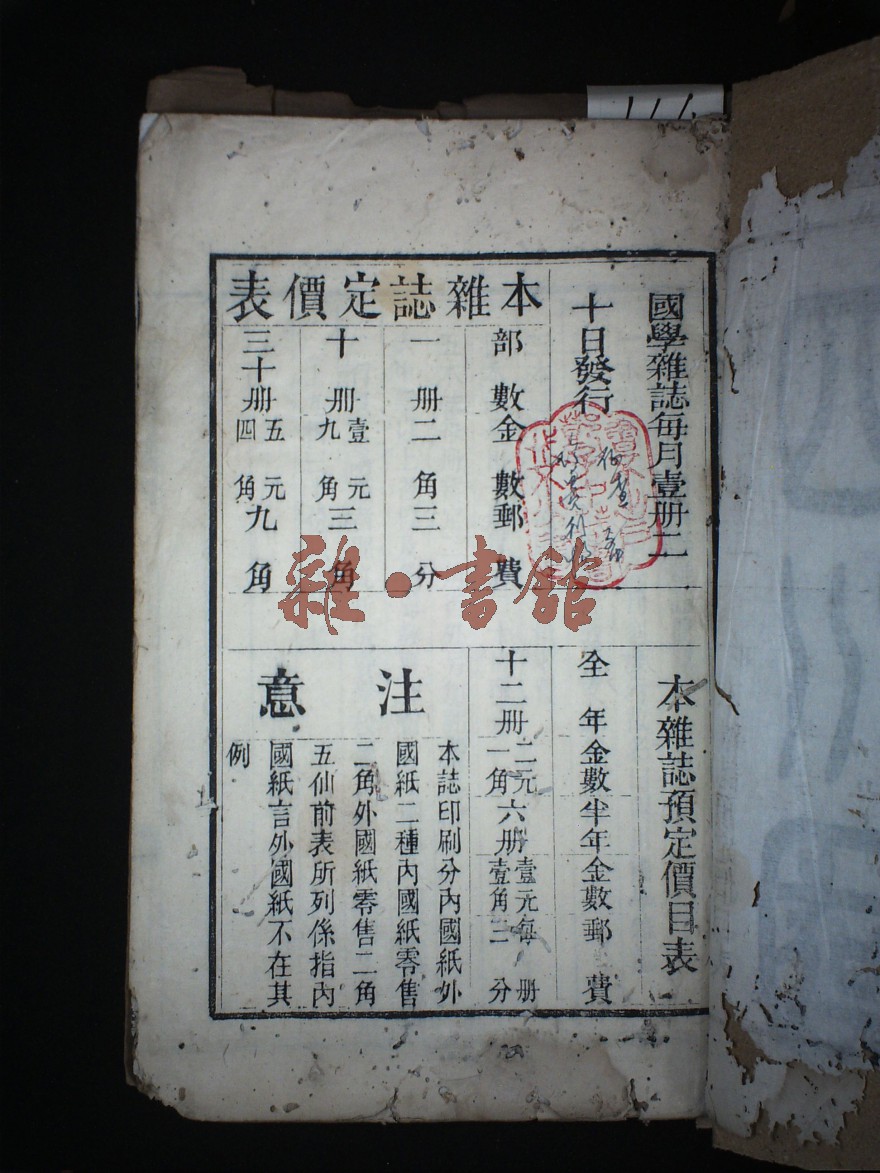 國學雜誌每月壹册二
十日發行
本雜誌定價表
部數 金數 郵費
一册 二角 三分
十册 壹元九角 三角
三十册 五元四角 九角
本雜誌預定價目表
全年 金數 半年 金數 郵費
十二册 二元一角 六册 壹元壹角 每册三分
注意
本誌印刷分內國紙外
國紙二種內國紙零售
二角外國紙零售二角
五仙前表所列係指內
國紙言外國紙不在其
例
雜·書館